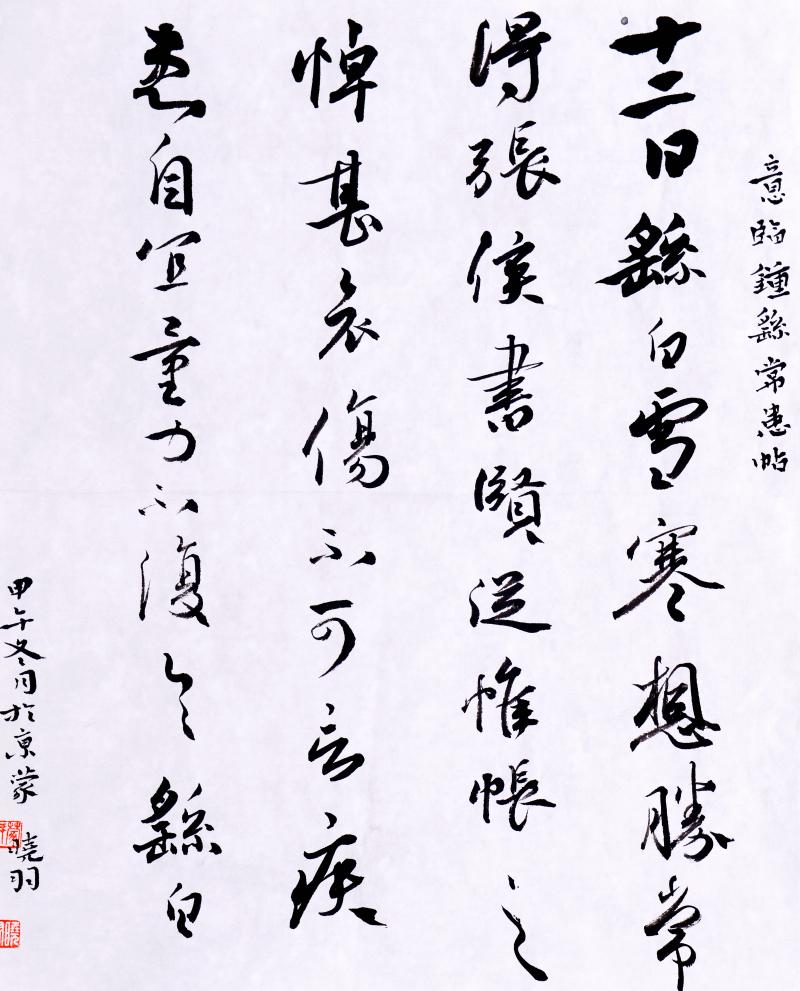 意臨鍾繇常患帖
十二日繇白雪寒想勝常
得張侯書賢從帷帳之
悼甚哀傷不可言疾
患自宜量力不復具繇白
甲午冬月於京蒙 曉羽